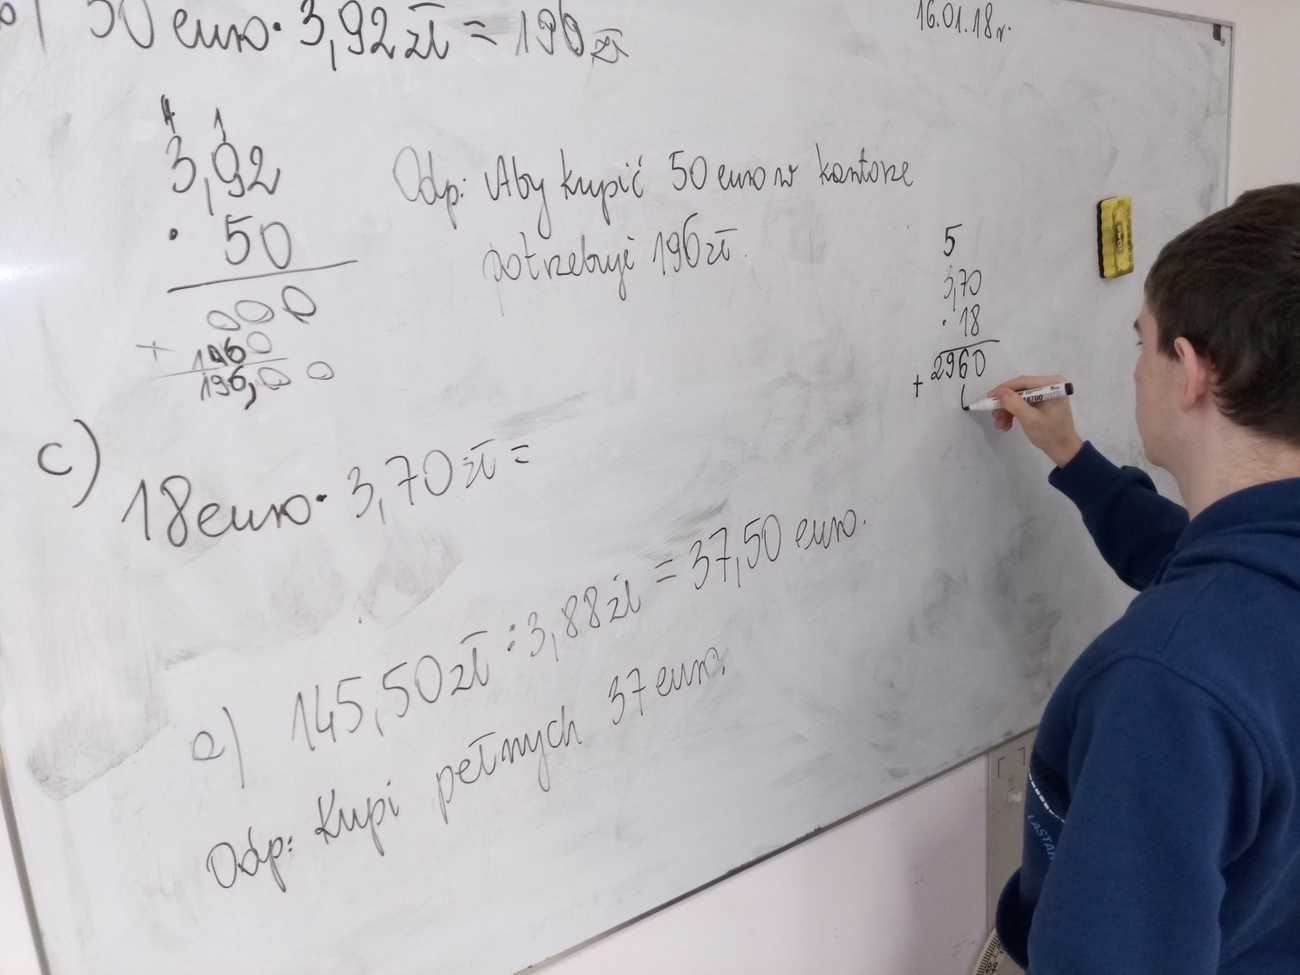 b) 50 euro · 3,92 zł = 196 zł
16.01.18r.
1
3,92
· 50
000
+ 1960
196,00
Odp: Aby kupić 50 euro w kantorze
potrzebuje 196 zł.
5
3,70
· 18
2960
+
c) 18 euro · 3,70 zł =
e) 145,50 zł : 3,88 zł = 37,50 euro.
Odp: Kupi pełnych 37 euro.